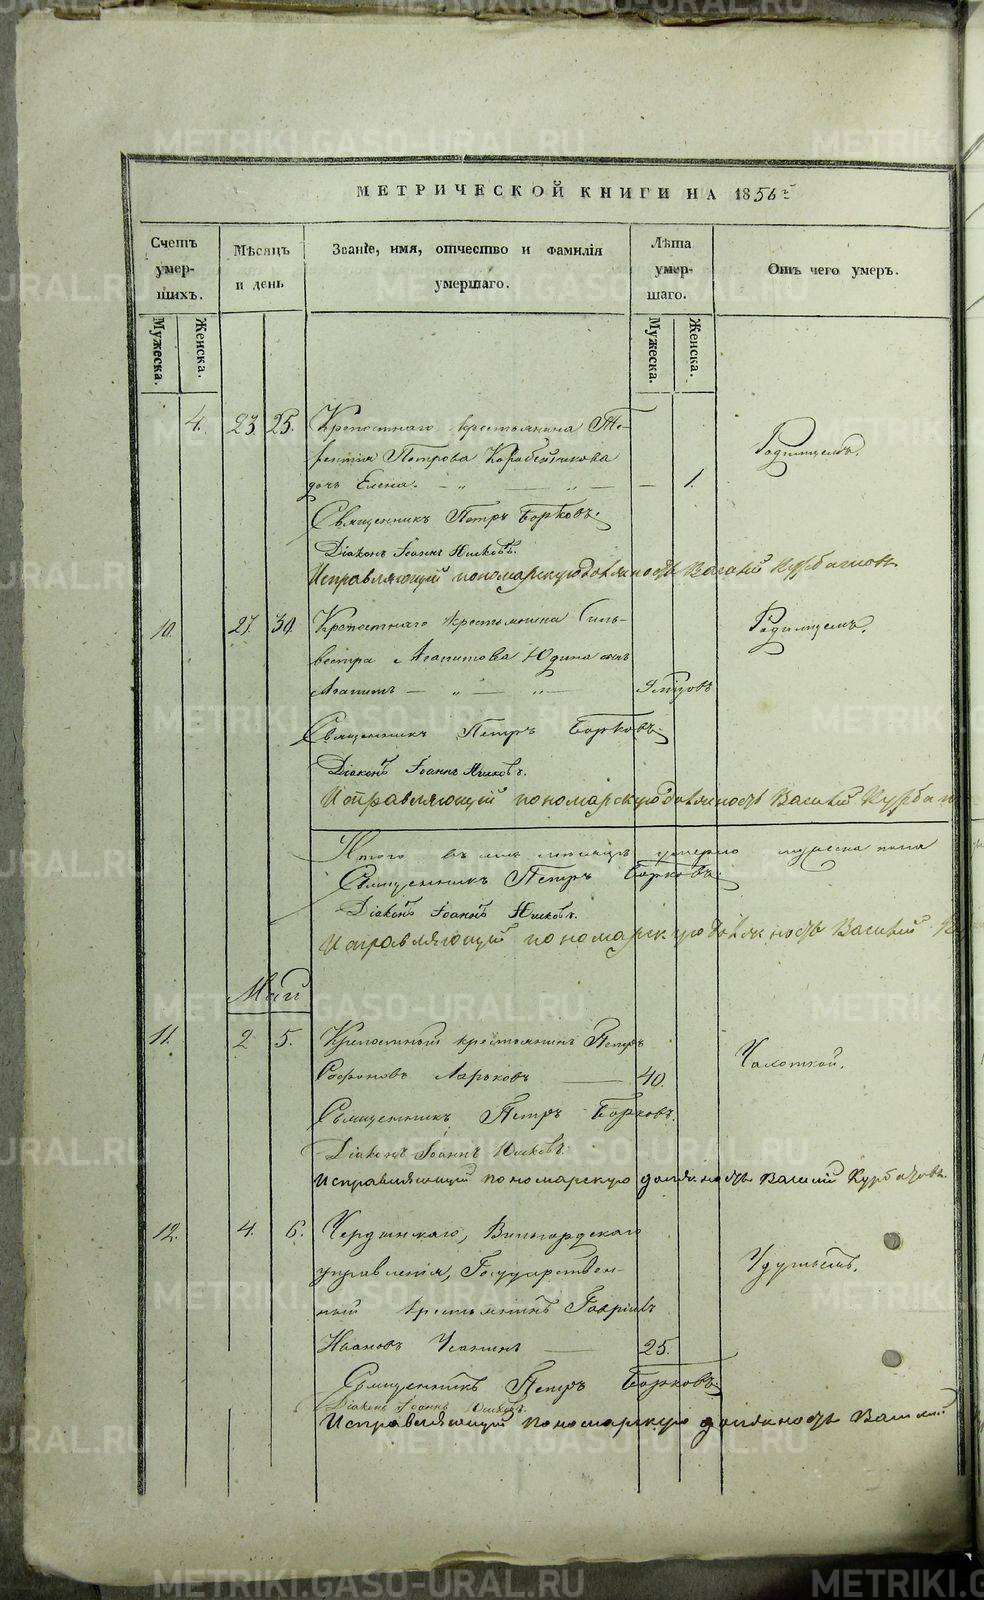 МЕТРИЧЕСКОЙ КНИГИ НА 1856й
Счетъ умер-шихъ.
Мѣсяцъ и день
Званіе, имя, отчество и фамилія умершаго.
Лѣта умер-шаго.
Отъ чего умеръ.
Мужеска.
Женска.
Мужеска.
Женска.
4. 23. 25. Крепостнаго крестьянина Те-
рентія Петрова Коробейникова
дочь Елена. — „ — „ — — 1. Родимцемъ.
Священникъ Петръ Борковъ.
Діаконъ Іоаннъ Юшковъ.
Исправляющій пономарскую должность Василій Курбатовъ
10. 27. 30. Крепостнаго крестьянина Силь-
вестра Агапитова Юдина сынъ
Агапитъ — „ — „ — Родимцемъ.
Священникъ Петръ Борковъ.
Діаконъ Іоаннъ Юшковъ.
Исправляющій пономарскую должность Василій Курбат
Итого въ мѣсяцѣ умерло мужеска пола
Священникъ Петръ Борковъ.
Діаконъ Іоаннъ Юшковъ.
Исправляющій пономарскую должность Василій
Маій
11. 2 5. Крепостный крестьянинъ Петръ
Софоновъ Ларьковъ — 40. Чахоткой.
Священникъ Петръ Борковъ.
Діаконъ Іоаннъ Юшковъ.
Исправляющій пономарскую должность Василій Курбатовъ.
12. 4. 6. Чердынскаго,
управленія, Государствен-
ный крестьянинъ Гавріилъ
Ивановъ — 25. Удушьемъ.
Священникъ Петръ Борковъ.
Діаконъ Іоаннъ Юшковъ.
Исправляющій пономарскую должность Василій
METRIKI.GASO-URAL.RU